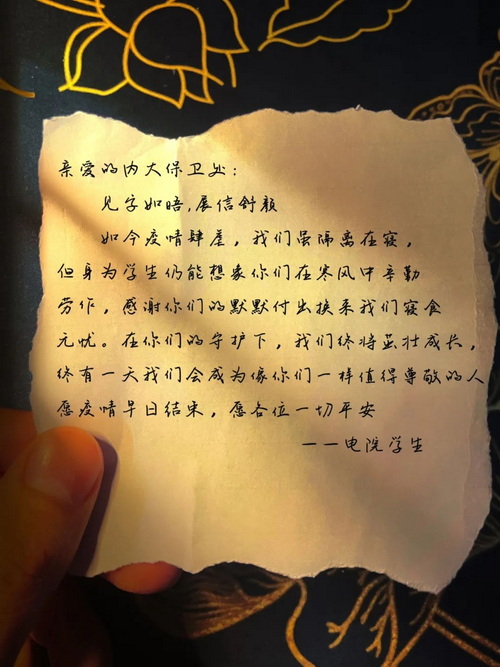 亲爱的内大保卫处：
见字如晤，展信舒颜
如今疫情肆虐，我们虽隔离在寝，
但身为学生仍能想象你们在寒风中辛勤
劳作，感谢你们的默默付出换来我们寝食
无忧。在你们的守护下，我们终将茁壮成长，
终有一天我们会成为像你们一样值得尊敬的人
愿疫情早日结束，愿各位一切平安
——电院学生